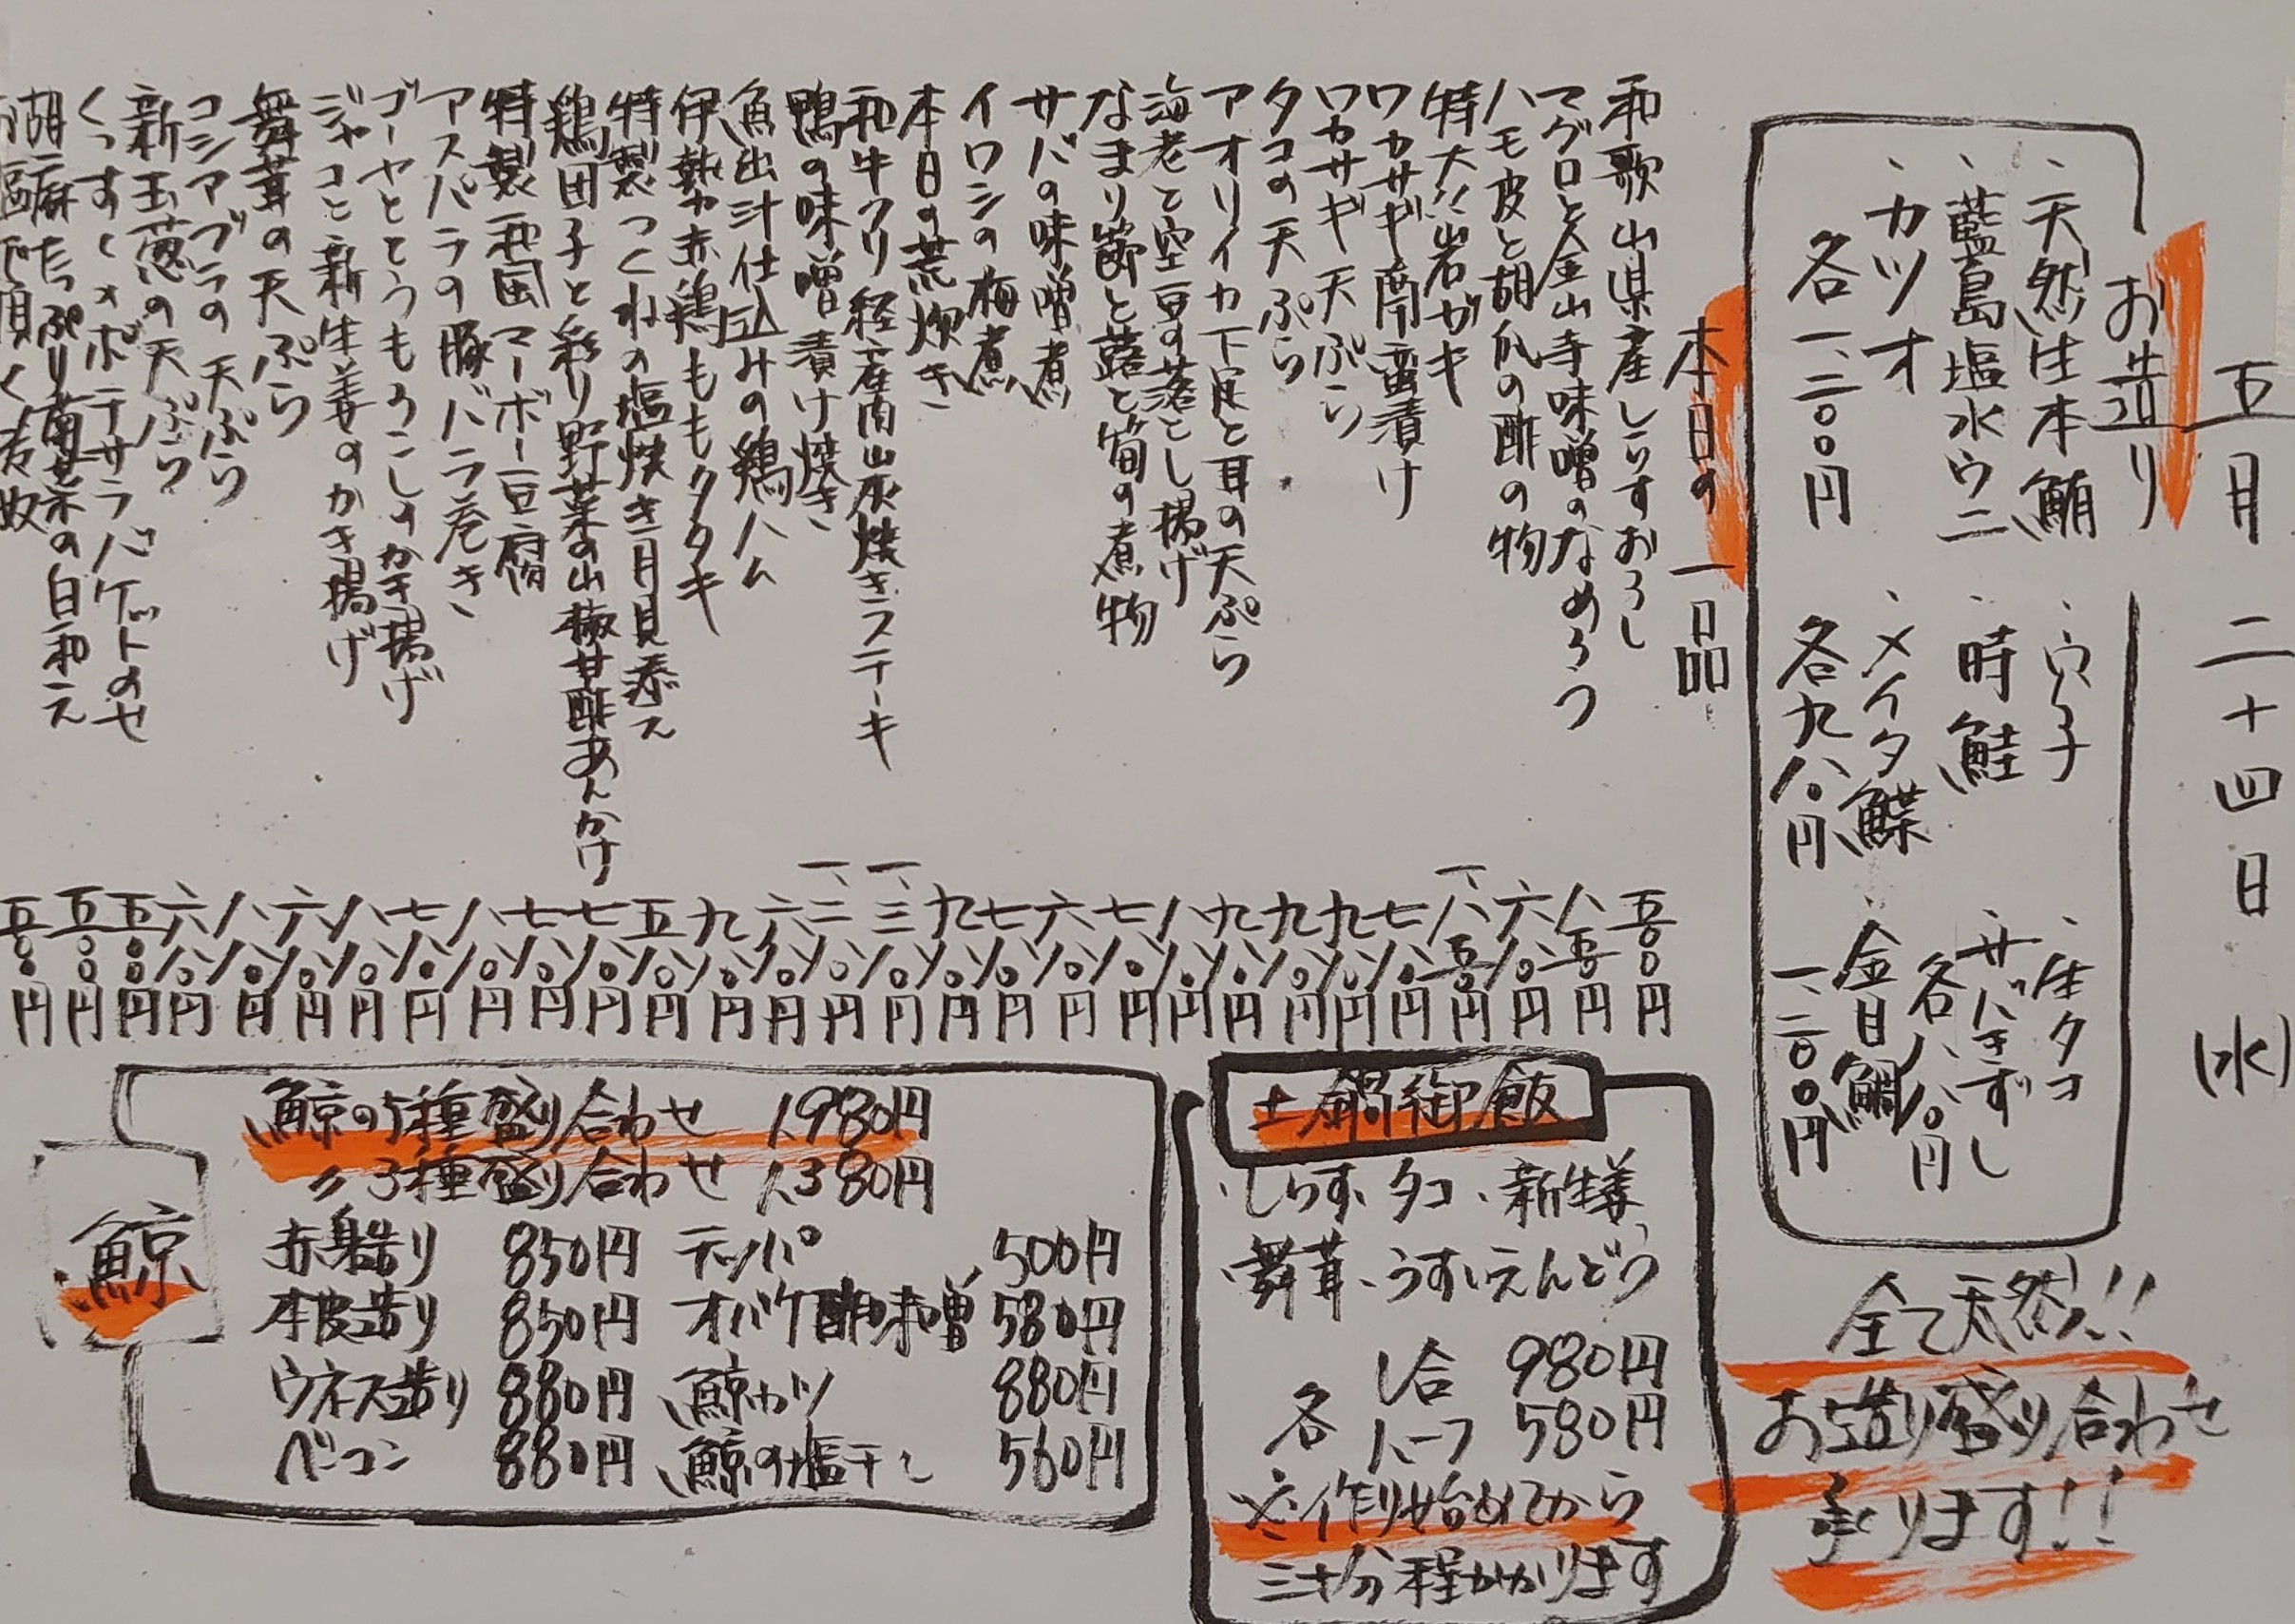 五月二十四日(水)
お造り
・天然生本鮪
・藍島塩水ウニ
・カツオ
各一、二〇〇円
・穴子
・時鮭
・メイタ鰈
各九八〇円
・生タコ
・サバきずし
各八八〇円
・金目鯛
一、二〇〇円
全て天然!!
お造り盛り合わせ
承ります!!
本日の一品
和歌山県産しらすおろし 五〇〇円
マグロと金山寺味噌のなめろう 八五〇円
ハモ皮と胡瓜の酢の物 六八〇円
特大!!岩ガキ 一、八五〇円
ワカサギ南蛮漬け 七八〇円
ワカサギ天ぷら 九八〇円
タコの天ぷら 九八〇円
アオリイカ下足と耳の天ぷら 九八〇円
海老と空豆の落とし揚げ 八八〇円
なまり節と蕗と筍の煮物 七八〇円
サバの味噌煮 六八〇円
イワシの梅煮 七八〇円
本日の荒炊き 九八〇円
和牛クリ 経産肉山炭焼きステーキ 一、三八〇円
鴨の味噌漬け焼き 一、二八〇円
魚出汁仕込みの鶏ハム 六八〇円
伊勢赤鶏ももタタキ 九八〇円
特製つくねの塩焼き月見添え 五八〇円
鶏団子と彩り野菜の山椒甘酢あんかけ 七八〇円
特製和風マーボー豆腐 七八〇円
アスパラの豚バラ巻き 八八〇円
ゴーヤととうもろこしのかき揚げ 七八〇円
ジャコと新生姜のかき揚げ 八八〇円
舞茸の天ぷら 六八〇円
コシアブラの天ぷら 八八〇円
新玉葱の天ぷら 六八〇円
くんすくメポテサラバケットのせ 五〇〇円
胡麻たっぷり菊菜の白和え 五〇〇円
お塩で頂く 五〇〇円
土鍋御飯
・しらす・タコ・新生姜
・舞茸・うすいえんどう
各
1合 980円
ハーフ 580円
※作り始めてから
三十分程かかります
鯨
鯨の5種盛り合わせ 1,980円
〃3種盛り合わせ 1,380円
赤身造り 850円 テッパ 500円
本皮造り 850円 オバケ酢味噌 580円
ウネス造り 880円 鯨カツ 880円
ベーコン 880円 鯨の塩干し 560円